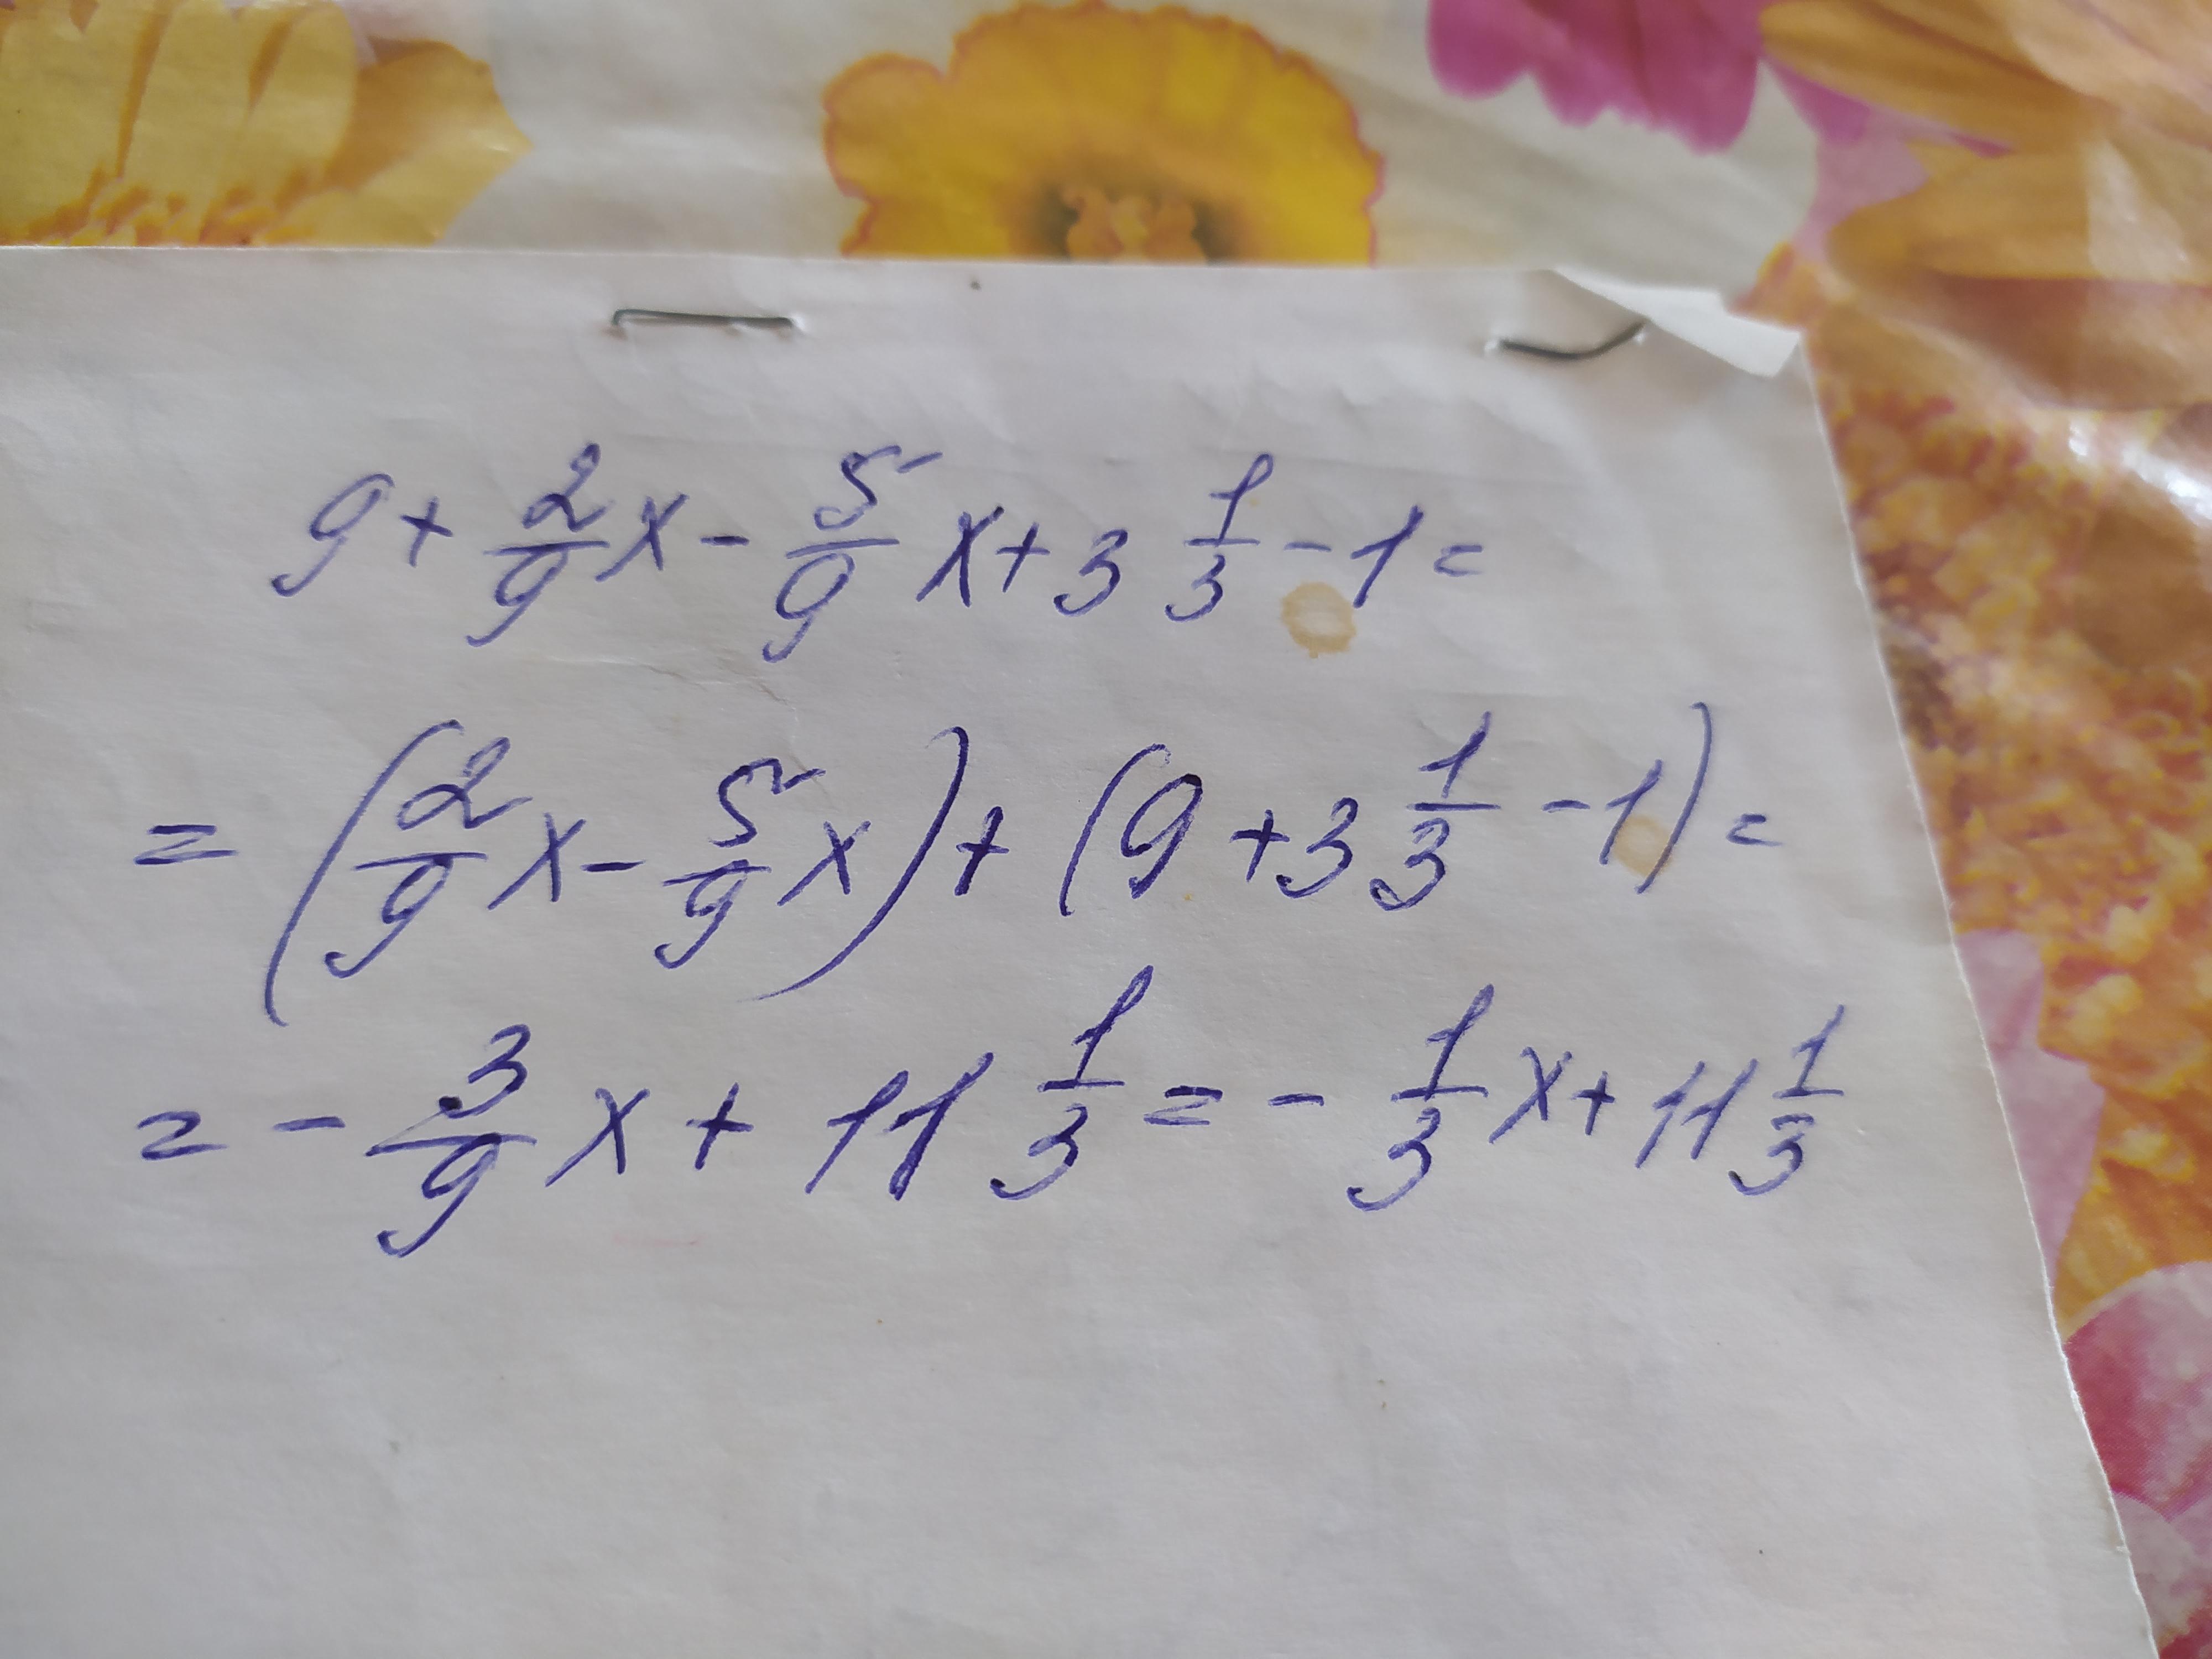 9 + 2/9 x - 5/9 x + 3 1/3 - 1 =
= (2/9 x - 5/9 x) + (9 + 3 1/3 - 1) =
= - 3/9 x + 11 1/3 = - 1/3 x + 11 1/3